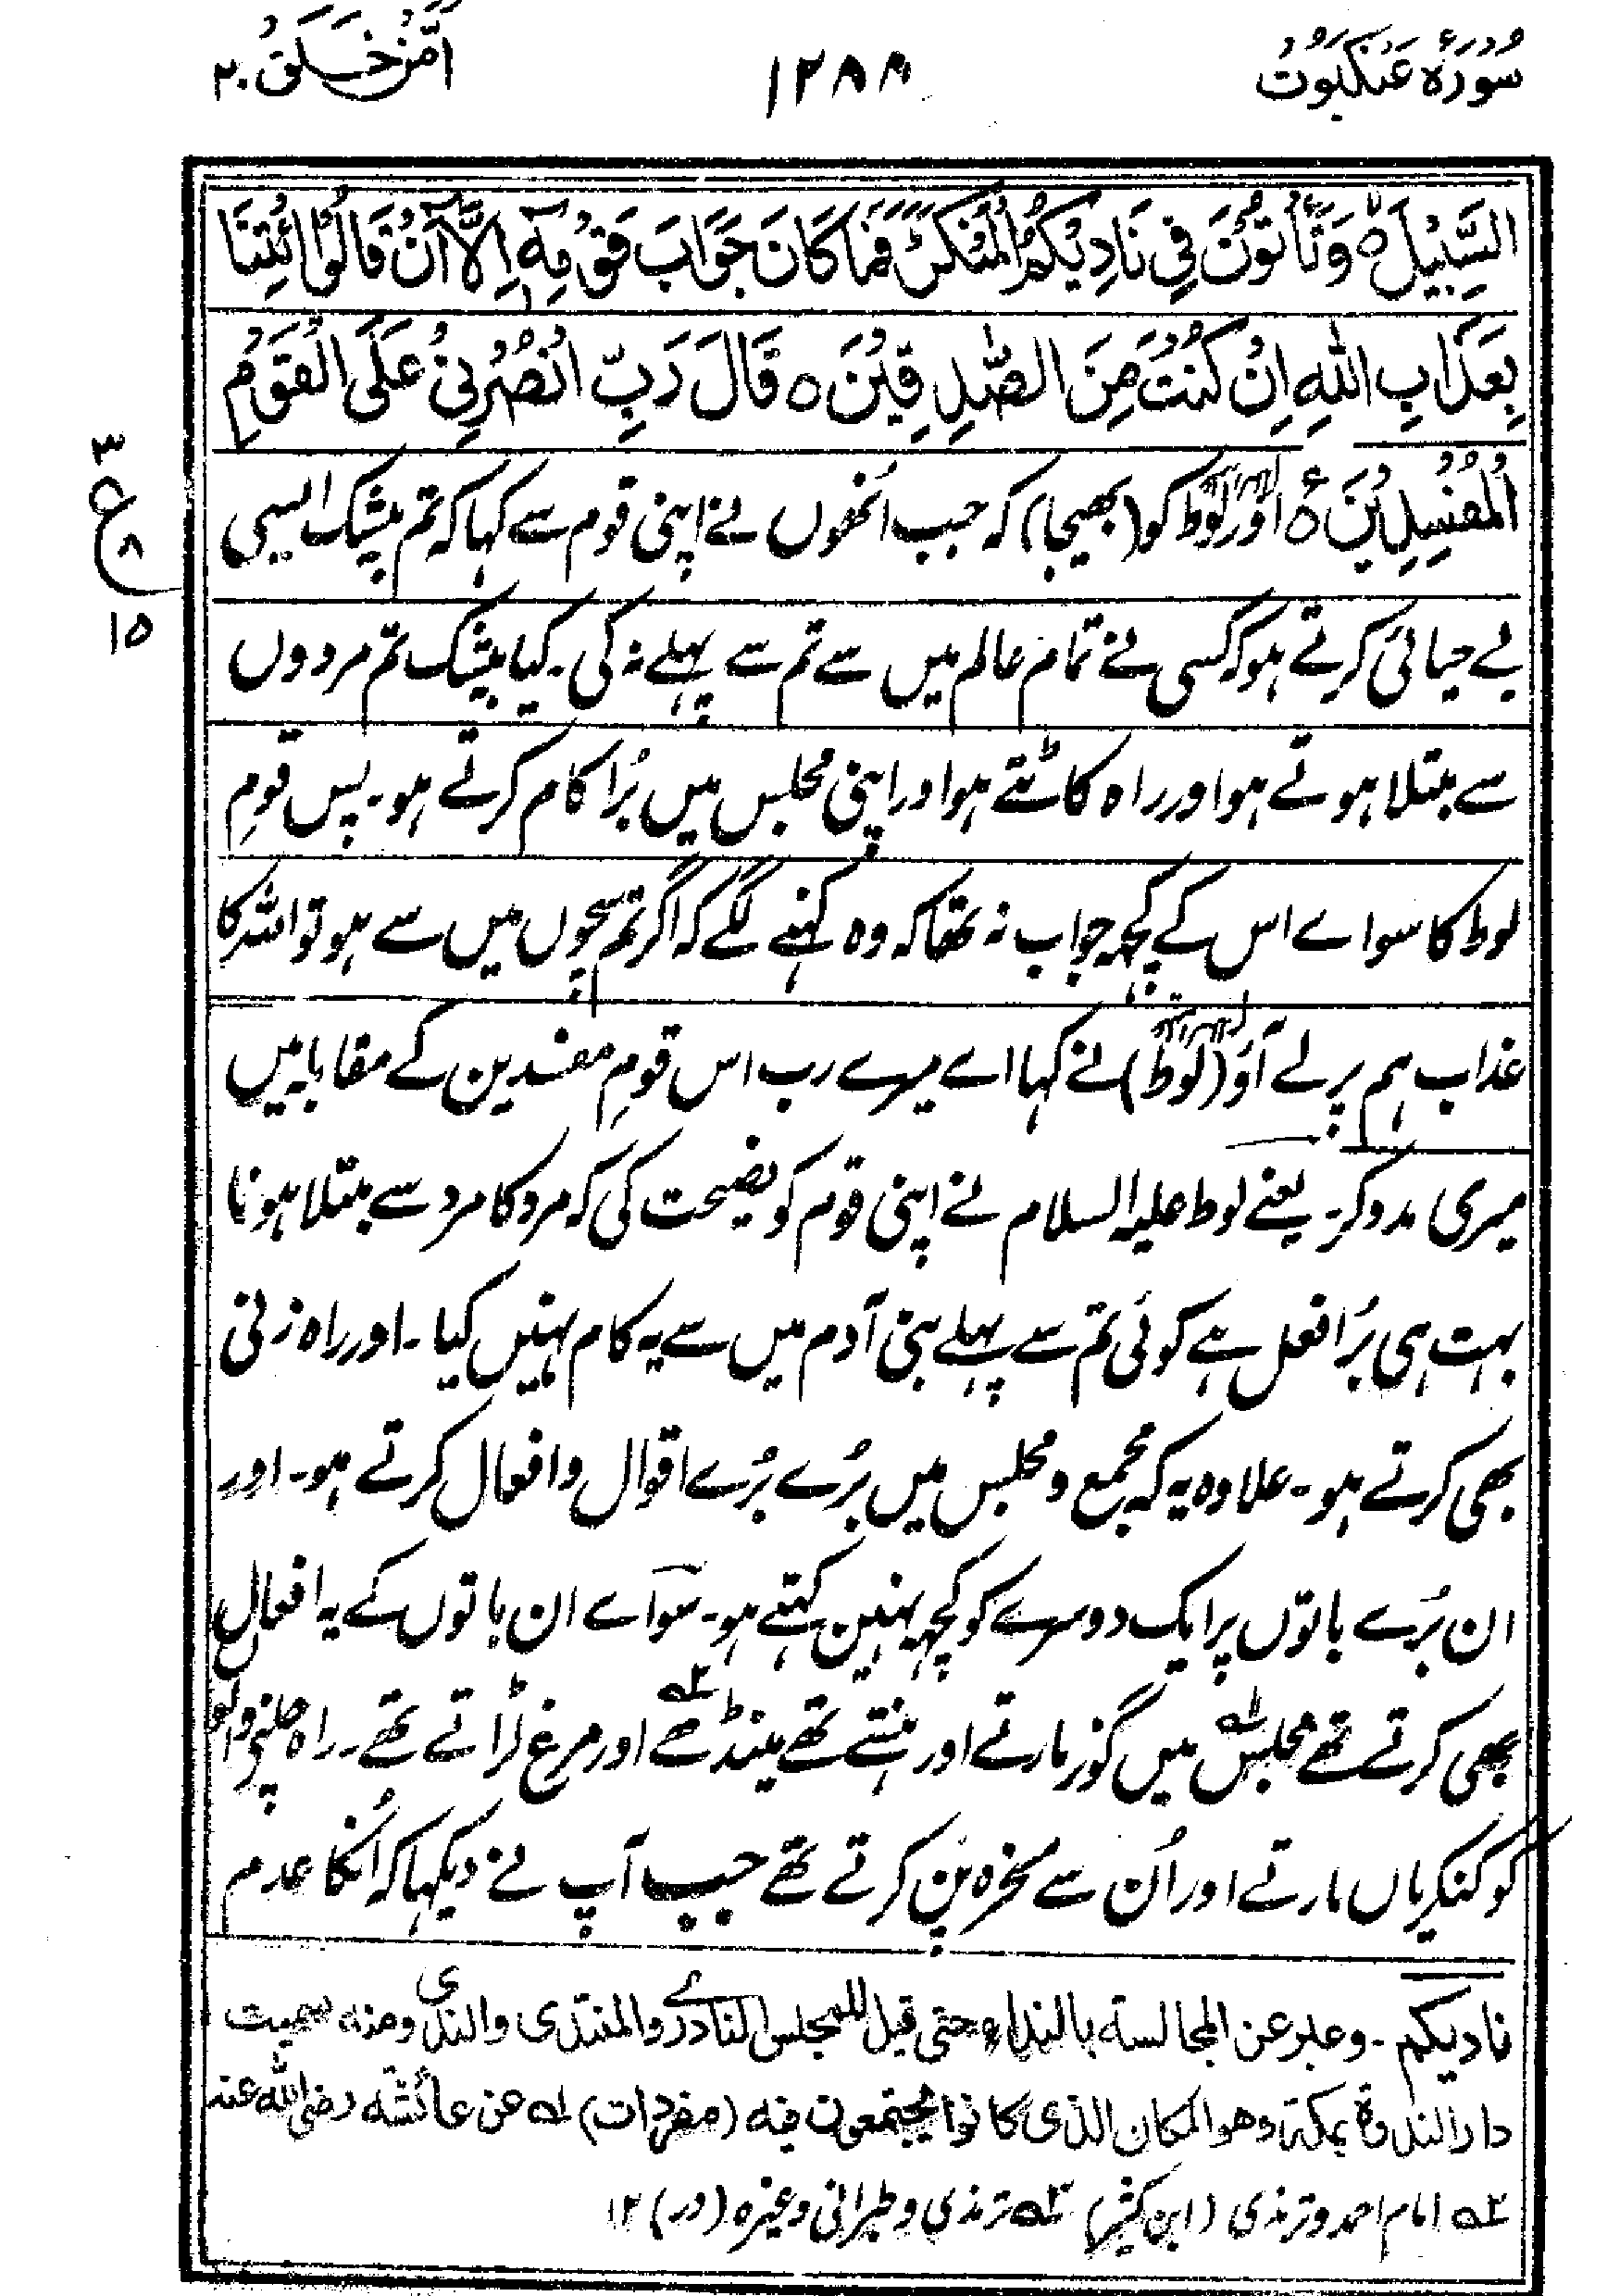 سُوْرَۂ عَنْكَبُوْت
١٢٨٨
اَمَّنْ خَلَقَ ٢٠
السَّبِيْلَ ۙ وَتَاْتُوْنَ فِيْ نَادِيْكُمُ الْمُنْكَرَ ؕ فَمَا كَانَ جَوَابَ قَوْمِهٖٓ اِلَّاۤ اَنْ قَالُوا ائْتِنَا
بِعَذَابِ اللّٰهِ اِنْ كُنْتَ مِنَ الصّٰدِقِيْنَ ۝ قَالَ رَبِّ انْصُرْنِيْ عَلَى الْقَوْمِ
الْمُفْسِدِيْنَ ۝ اور لوط کو (بھیجا) کہ جب اُنھوں نے اپنی قوم سے کہا کہ تم بیشک ایسی
بے حیائی کرتے ہو کہ کسی نے تمام عالم میں سے تم سے پہلے نہ کی۔ کیا بیشک تم مردوں
سے مبتلا ہوتے ہو اور راہ کاٹتے ہو اور اپنی مجلس میں بُرا کام کرتے ہو۔ پس قومِ
لوط کا سواے اس کے کچھ جواب نہ تھا کہ وہ کہنے لگے کہ اگر تم سچوں میں سے ہو تو اللہ کا
عذاب ہم پر لے آؤ (لوط) نے کہا اے میرے رب اس قومِ مفسدین کے مقابلہ میں
میری مدد کر۔ یعنے لوط علیہ السلام نے اپنی قوم کو نصیحت کی کہ مرد کا مرد سے مبتلا ہونا
بہت ہی بُرا فعل ہے کوئی تم سے پہلے بنی آدم میں سے یہ کام نہیں کیا۔ اور راہ زنی
بھی کرتے ہو۔ علاوہ یہ کہ مجمع و مجلس میں بُرے بُرے اقوال و افعال کرتے ہو۔ اور
ان بُرے باتوں پر ایک دوسرے کو کچھ نہیں کہتے ہو۔ سواے ان باتوں کے یہ افعال
بھی کرتے تھے مجلس لہ میں گوز مارتے اور ہنستے تھے مینڈھے ۲ہ اور مرغ لڑاتے تھے۔ راہ چلنے والو
کو کنکریاں مارتے اور اُن سے مسخرہ پن کرتے تھے جب آپ نے دیکھا کہ اُنکا عدم
ناديكم ۔ وعبر عن المجالسة بالنداء حتى قيل للمجلس النادى والمنتدى والندى ومنه سميت
دار الندوة بمكة وهو المكان الذى كانوا يجتمعون فيه (مفردات) لہ عن عائشة رضى الله عنه
۲ہ امام احمد و ترمذی (ابن کثیر) ۳ہ ترمذی و طبرانی وغیرہ (در) ١٢
٣
ع
٨
١٥